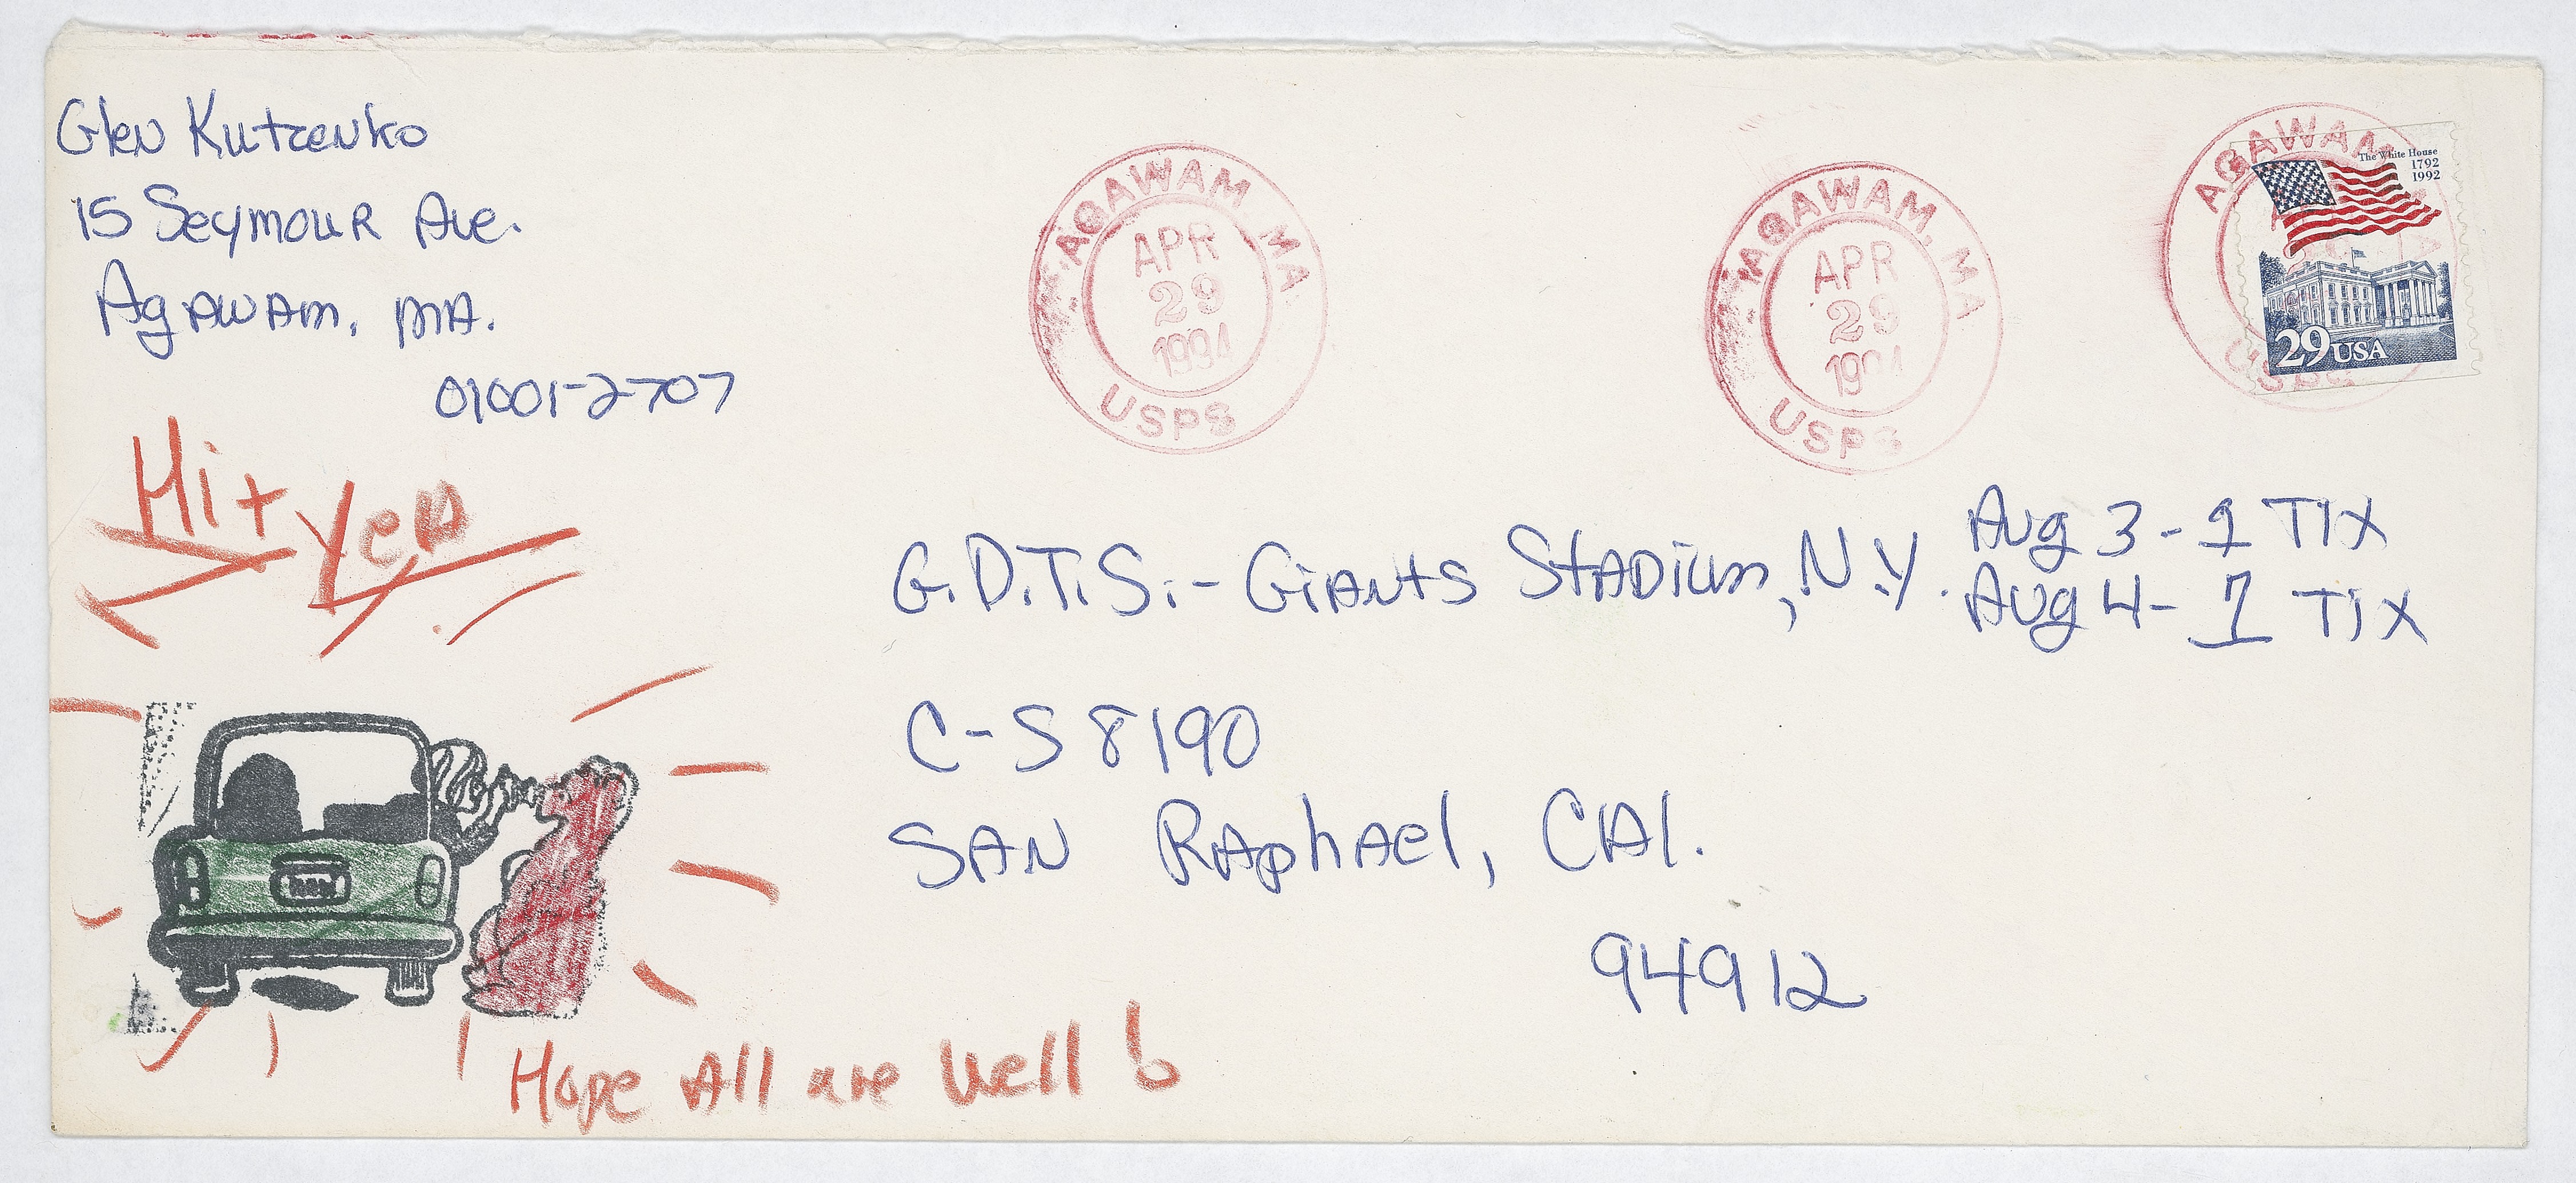 Glen Kutzenko
15 Seymour Ave.
Agawam, MA.
01001-2707
AGAWAM, MA
APR
29
1994
USPS
AGAWAM, MA
APR
29
1994
USPS
AGAWAM
USPS
The White House
1792
1992
29 USA
Hi +
Yep
G.D.T.S.:- Giants Stadium, N.Y.
Aug 3 - 1 TIX
Aug 4 - 1 TIX
C-S 8190
San Raphael, CAl.
94912
Hope All are Well